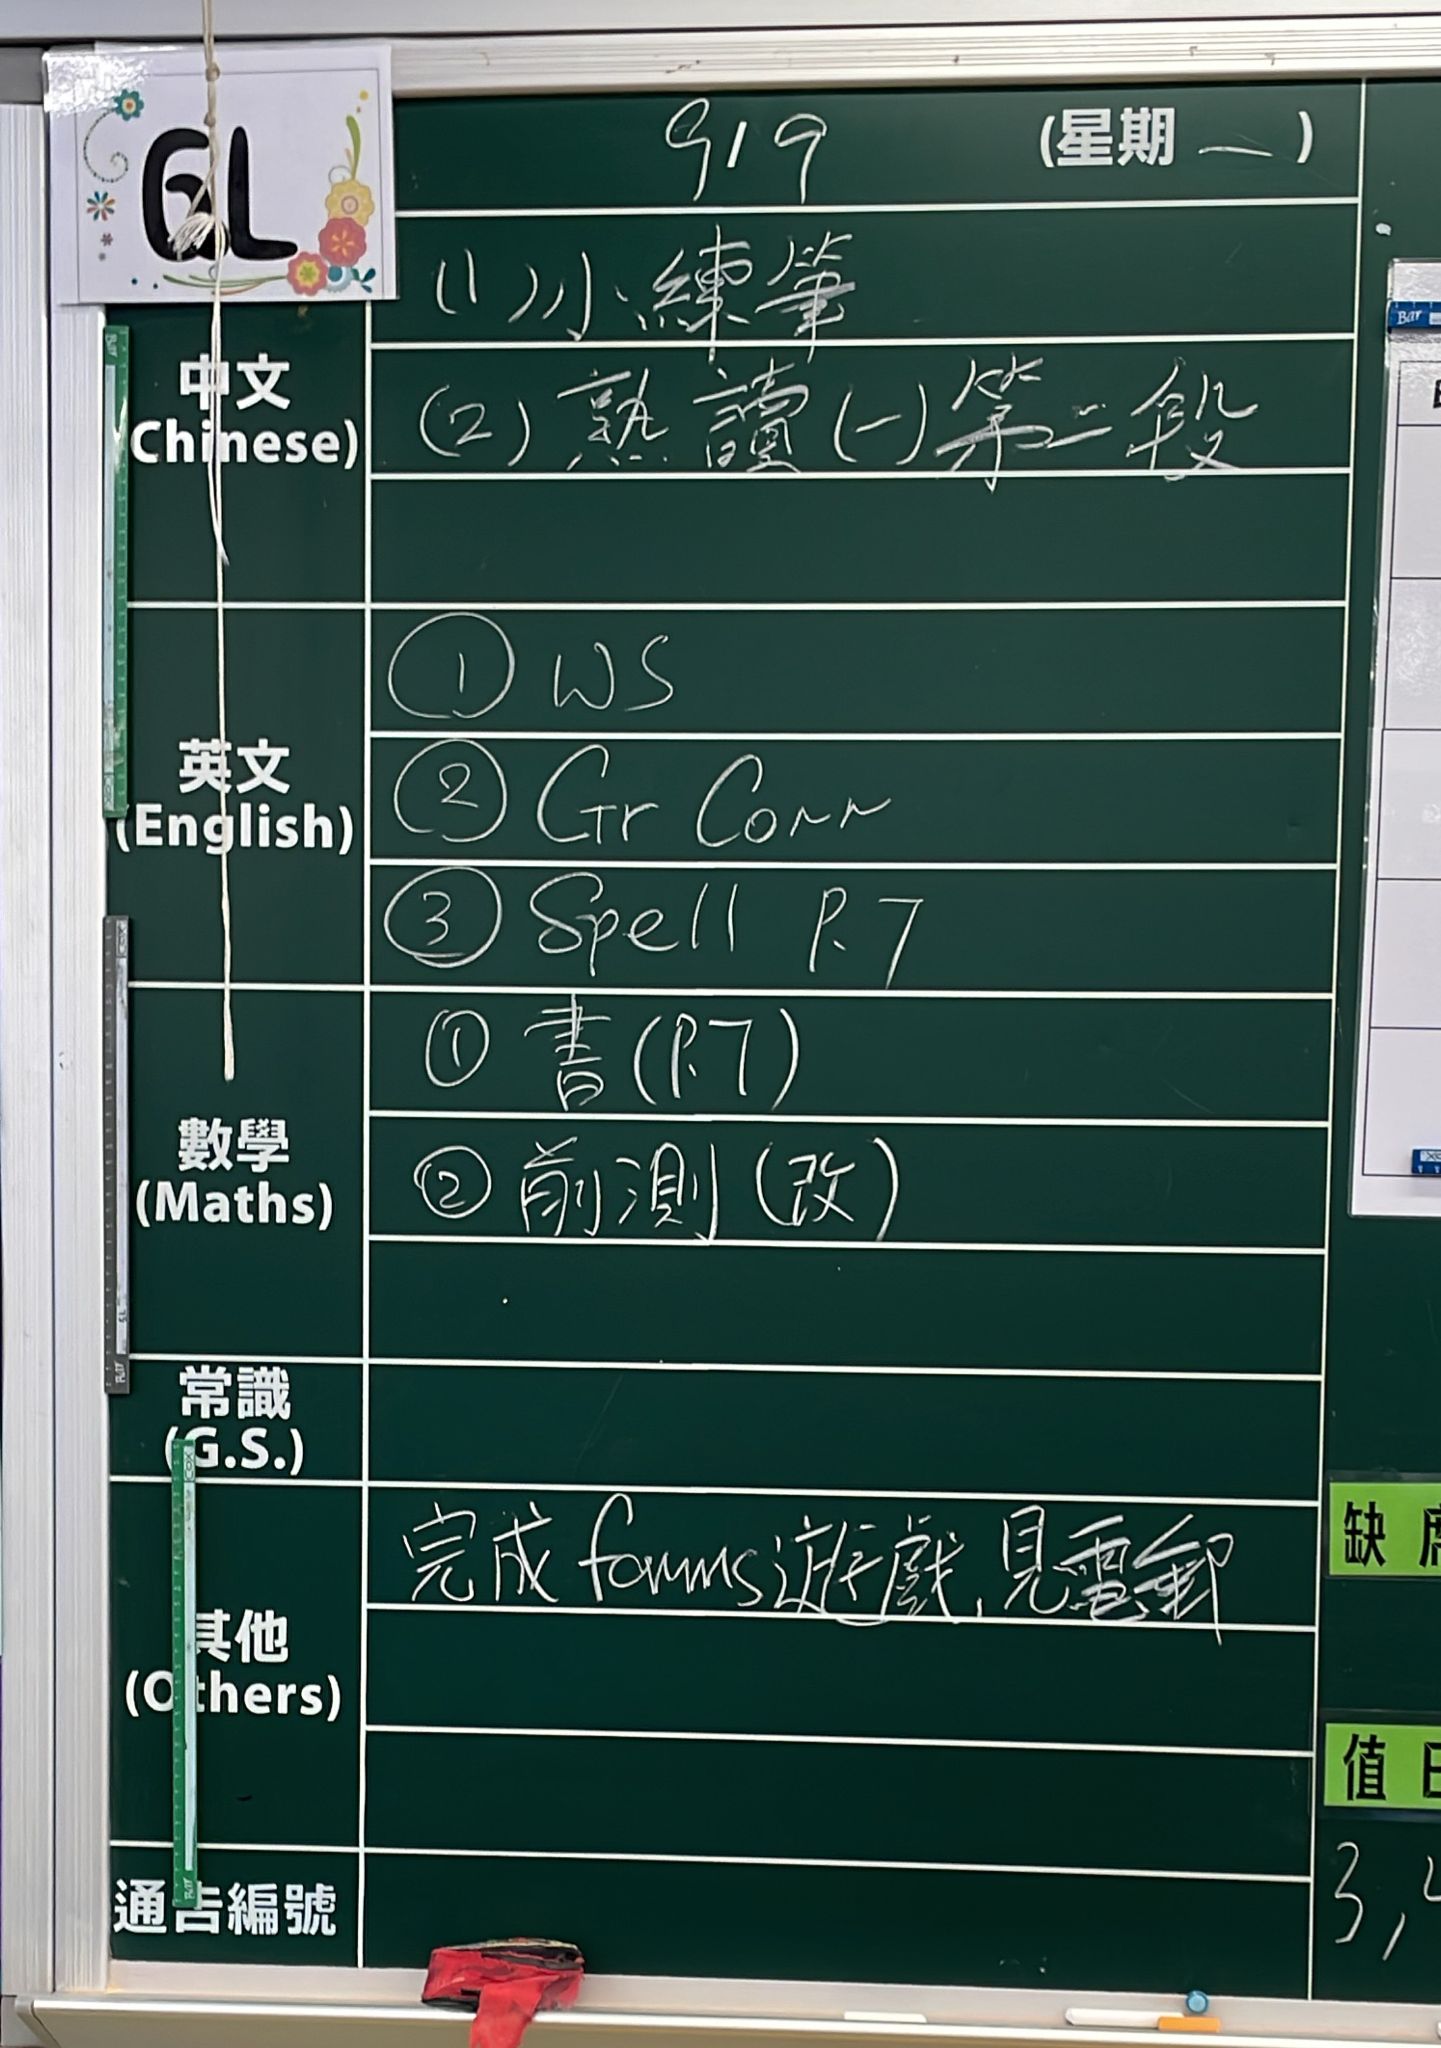 6L
9/9 (星期一)
中文
(Chinese)
(1) 小練筆
(2) 熟讀(一)第二段
英文
(English)
① WS
② Gr Corr
③ Spell P.7
數學
(Maths)
① 書(P.7)
② 前測(改)
常識
(G.S.)
其他
(Others)
完成forms遊戲,見電郵
通告編號
缺席
值日
3,